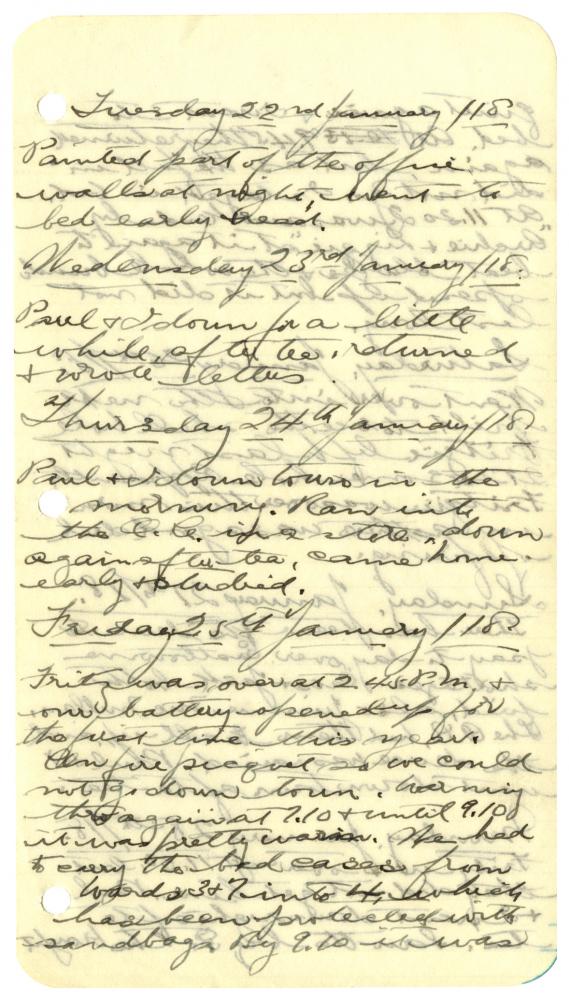 Tuesday 22nd January /18.
Painted part of the office
walls at night, went to
bed early & read.
Wedensday 23rd January /18.
Paul & I down for a little
while, after tea, returned
& wrote letters
Thursday 24th January /18.
Paul & I down town in the
morning. Ran into
the C.C. in a store, down
again after tea, came home
early & studied.
Friday 25th January /18.
Fritz was over at 2 45 P.M. &
our battery opened up for
the first time this year.
On fire picquet so we could
not go down town. Warning
again at 7.10 & until 9.10
it was pretty warm. We had
to carry the bed cases from
wards 3 & 7 into 4, which
has been protected with
sandbags. By 9.10 it was